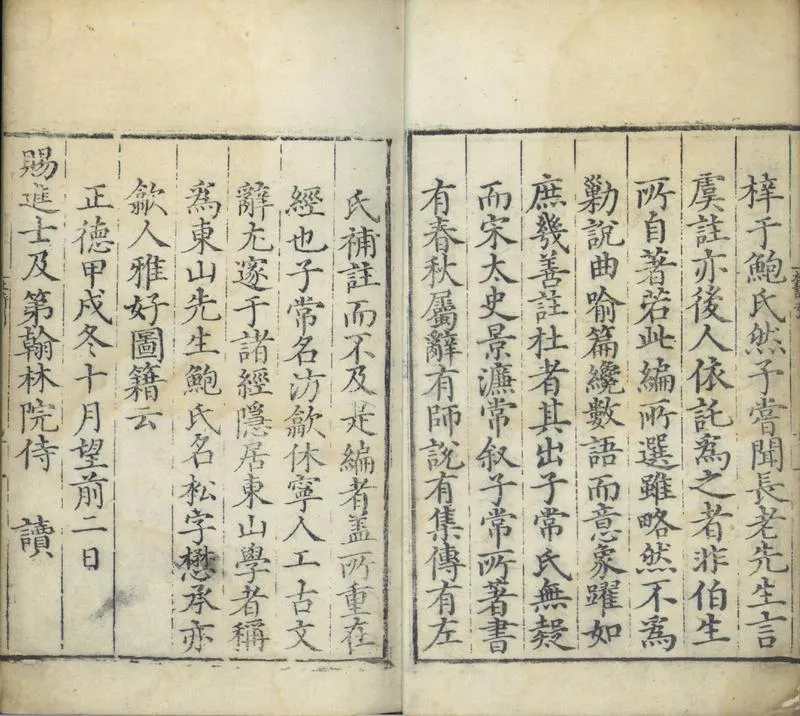 梓于鮑氏然予嘗聞長老先生言
虞註亦後人依託爲之者非伯生
所自著若此編所選雖略然不爲
勦說曲喻篇纔數語而意象躍如
庶幾善註杜者其出子常氏無疑
而宋太史景濂常叙子常所著書
有春秋屬辭有師說有集傳有左
氏補註而不及是編者盖所重在
經也子常名汸歙休寧人工古文
辭尤邃于諸經隱居東山學者稱
爲東山先生鮑氏名松字懋承亦
歙人雅好圖籍云
正德甲戌冬十月望前二日
賜進士及第翰林院侍 讀